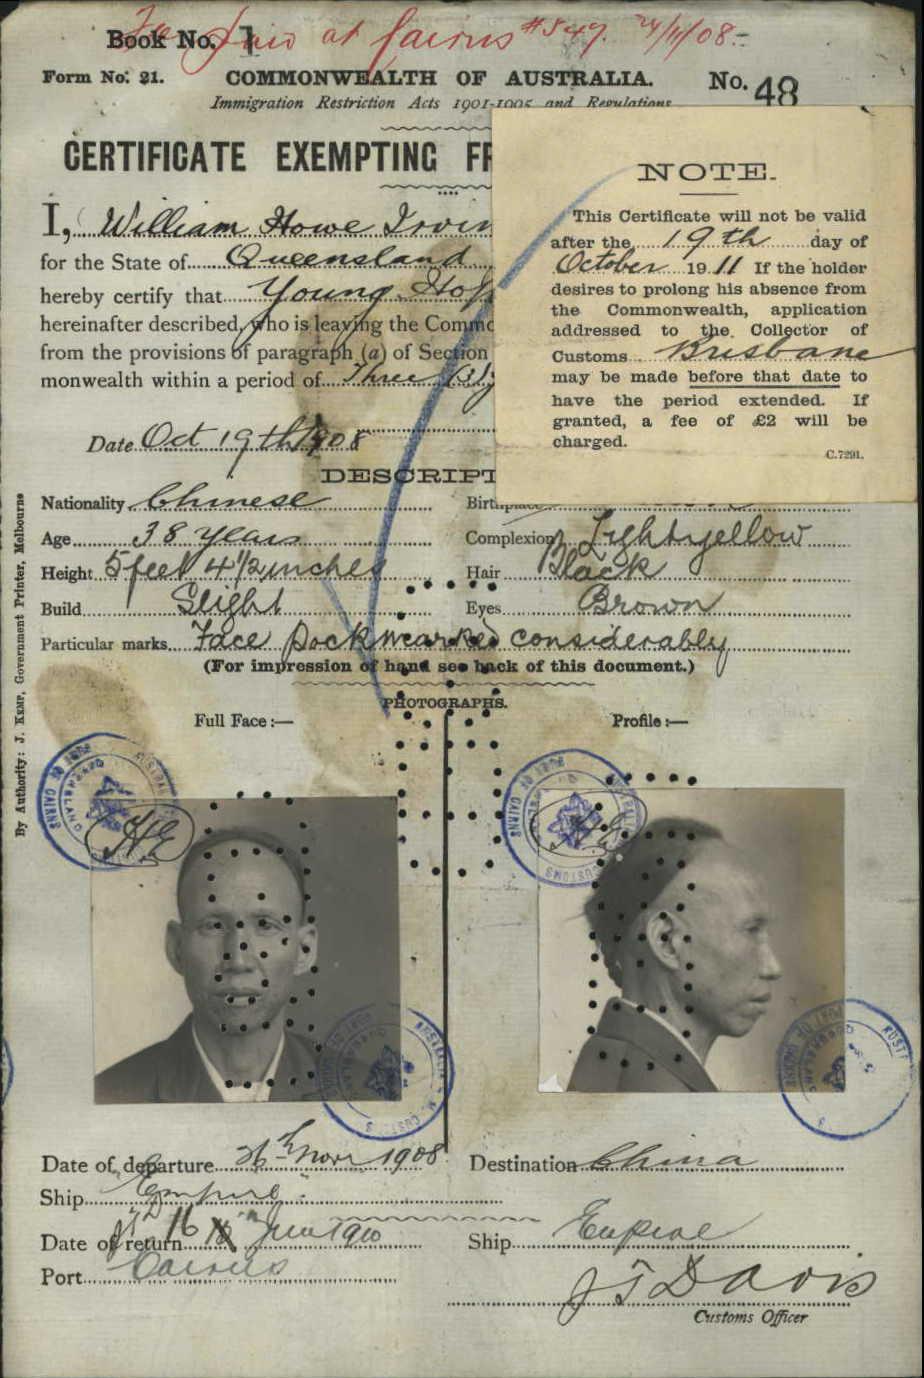 Book No. 1
Fee paid at Cairns #549. 24/11/08.
Form No. 21. COMMONWEALTH OF AUSTRALIA. No. 48
Immigration Restriction Acts 1901-1905 and Regulations
CERTIFICATE EXEMPTING FR
I, William Howe Irvin
for the State of Queensland
hereby certify that Young Hop
hereinafter described, who is leaving the Commo
from the provisions of paragraph (a) of Section
monwealth within a period of Three (3) y
Date Oct 19th 1908
NOTE.
This Certificate will not be valid
after the 19th day of
October 1911 If the holder
desires to prolong his absence from
the Commonwealth, application
addressed to the Collector of
Customs Brisbane
may be made before that date to
have the period extended. If
granted, a fee of £2 will be
charged.
C.7291.
DESCRIPT
Nationality Chinese Birthplace
Age 38 years Complexion Light yellow
Height 5 feet 4 1/2 inches Hair Black
Build Slight Eyes Brown
Particular marks Face pockmarked considerably
(For impression of hand see back of this document.)
PHOTOGRAPHS.
Full Face:— Profile:—
By Authority: J. KEMP, Government Printer, Melbourne
HE
HE
Date of departure 26th Novr 1908 Destination China
Ship Empire
Date of return 16 June 1910 Ship Empire
Port Cairns
J T Davis
Customs Officer